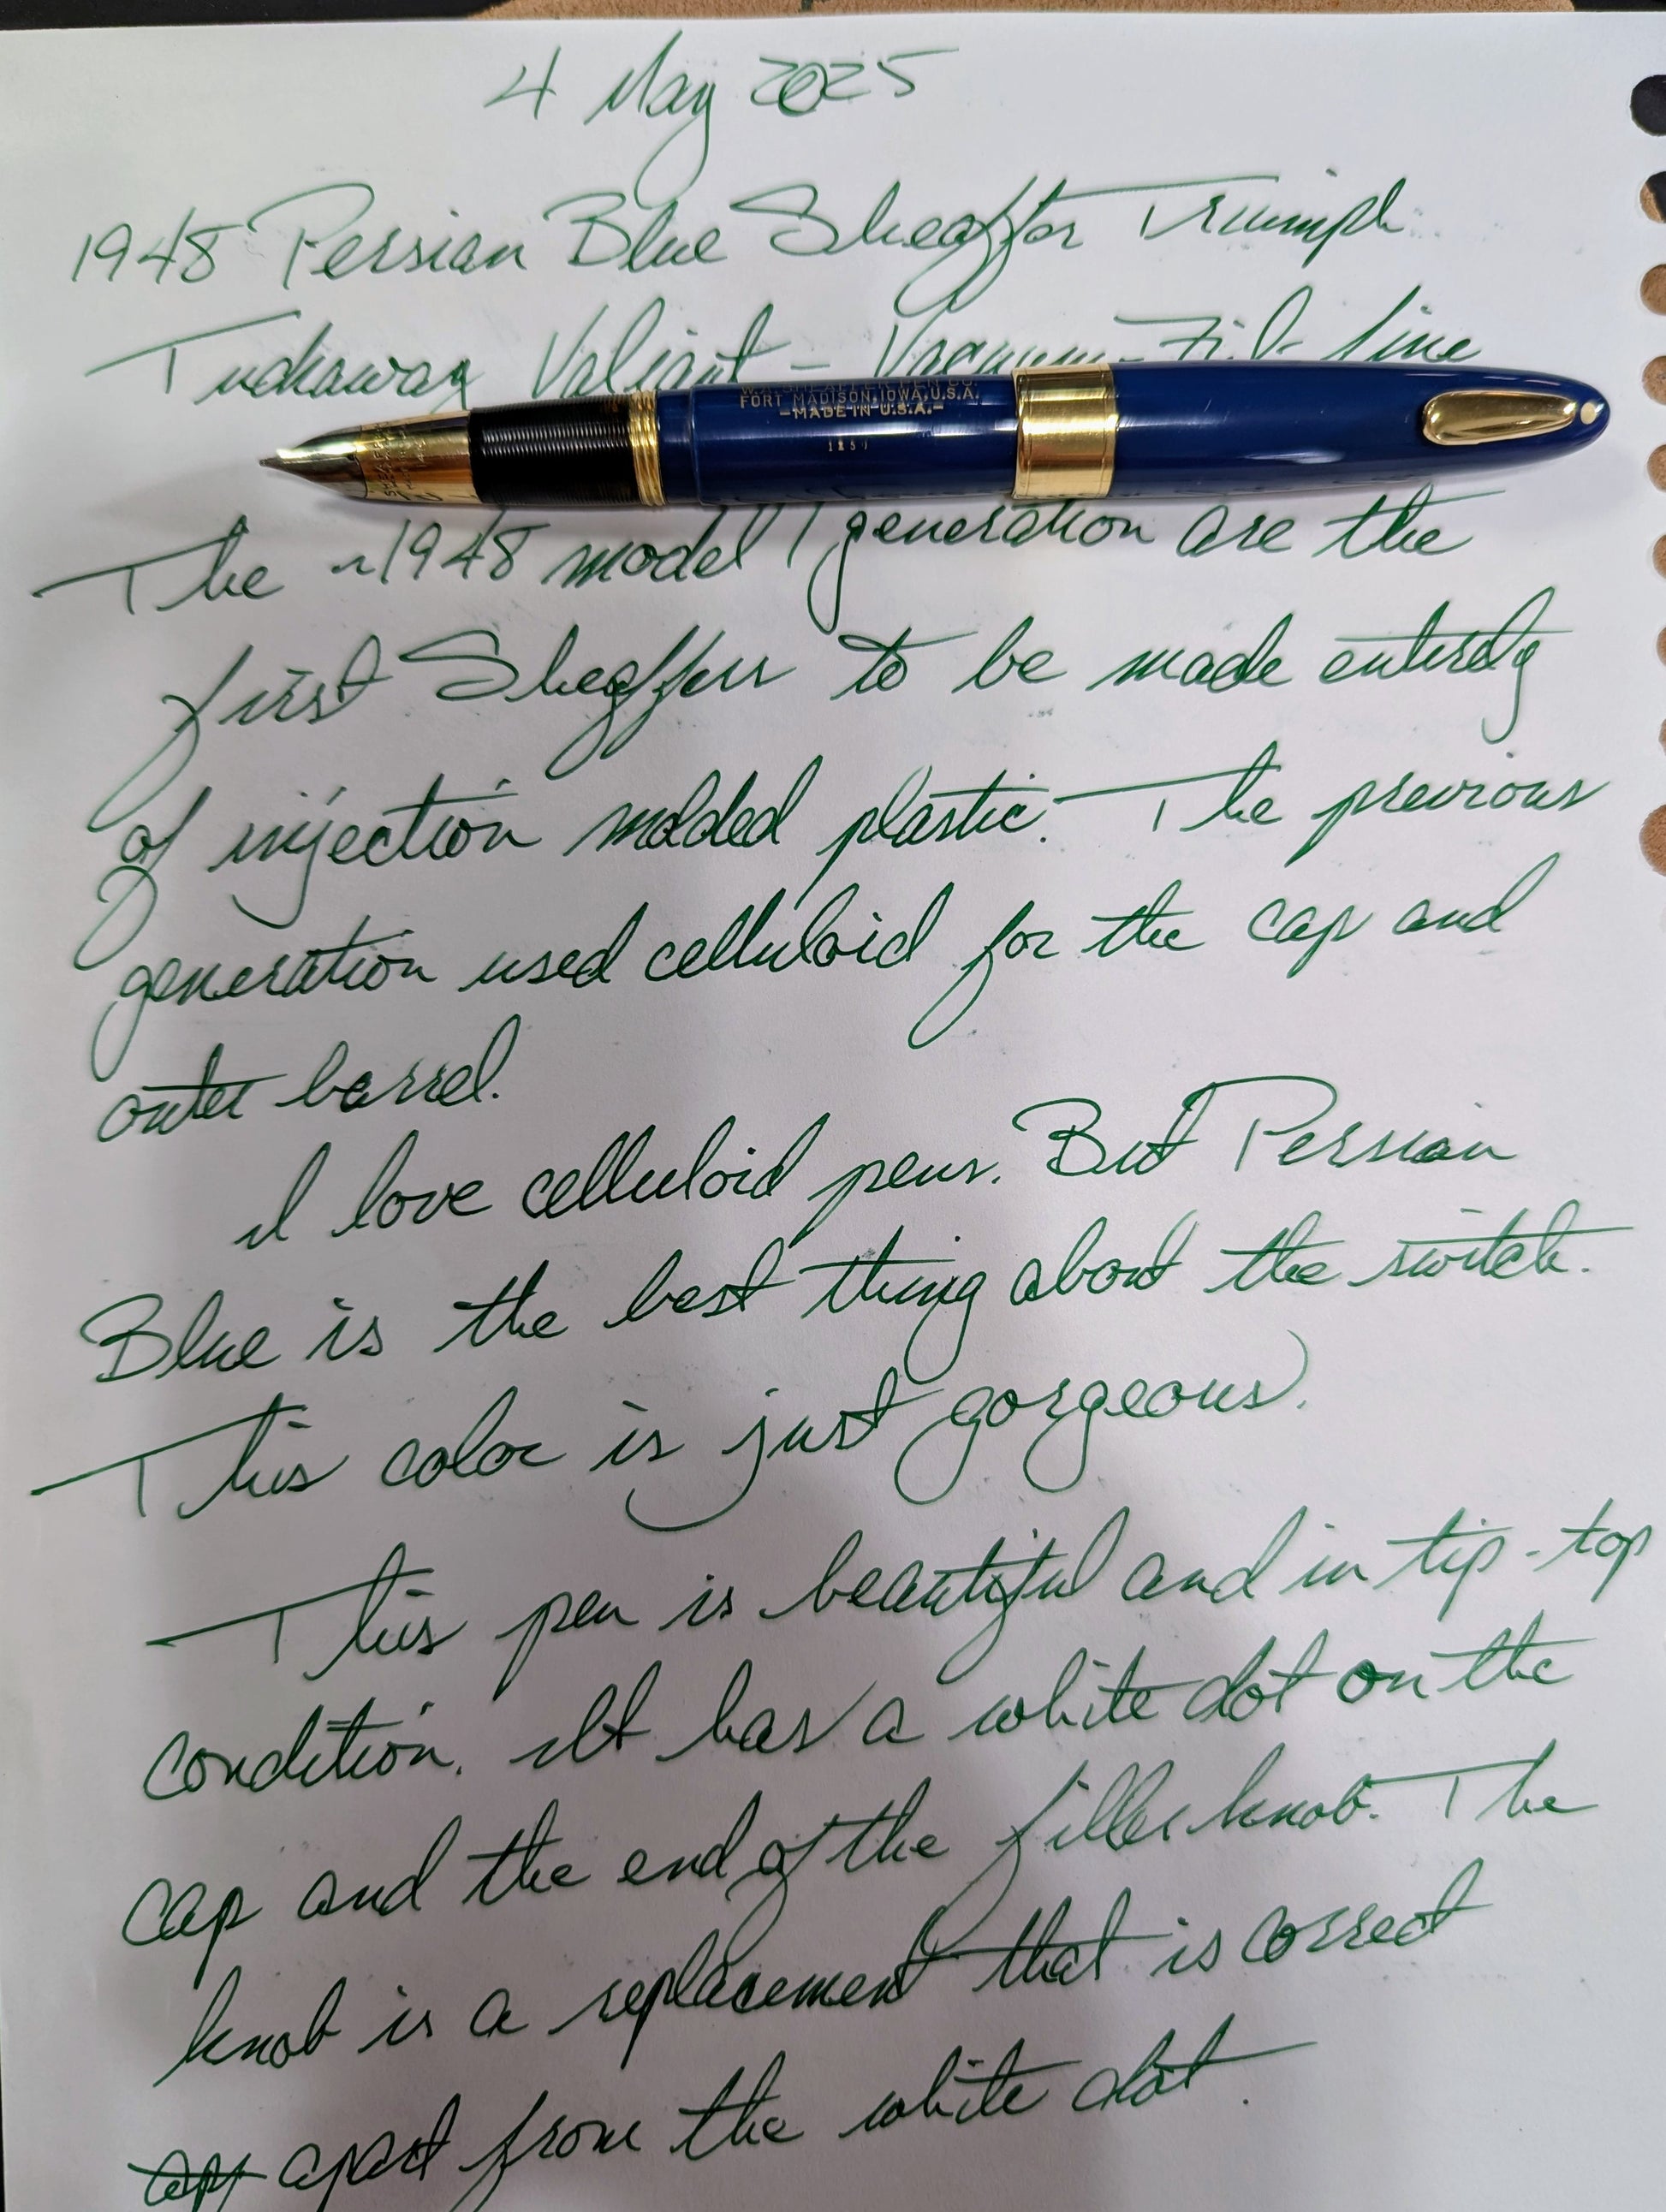 4 May 2025
1948 Persian Blue Sheaffer Triumph
Tuckaway Valiant - Vacuum-Fil line
FORT MADISON, IOWA, U.S.A.
-MADE IN U.S.A.-
The ~1948 model / generation are the
first Sheaffers to be made entirely
of injection molded plastic. The previous
generation used celluloid for the cap and
outer barrel.
I love celluloid pens. But Persian
Blue is the best thing about the switch.
This color is just gorgeous.
This pen is beautiful and in tip-top
condition. It has a white dot on the
cap and the end of the filler knob. The
knob is a replacement that is correct
apart from the white dot.